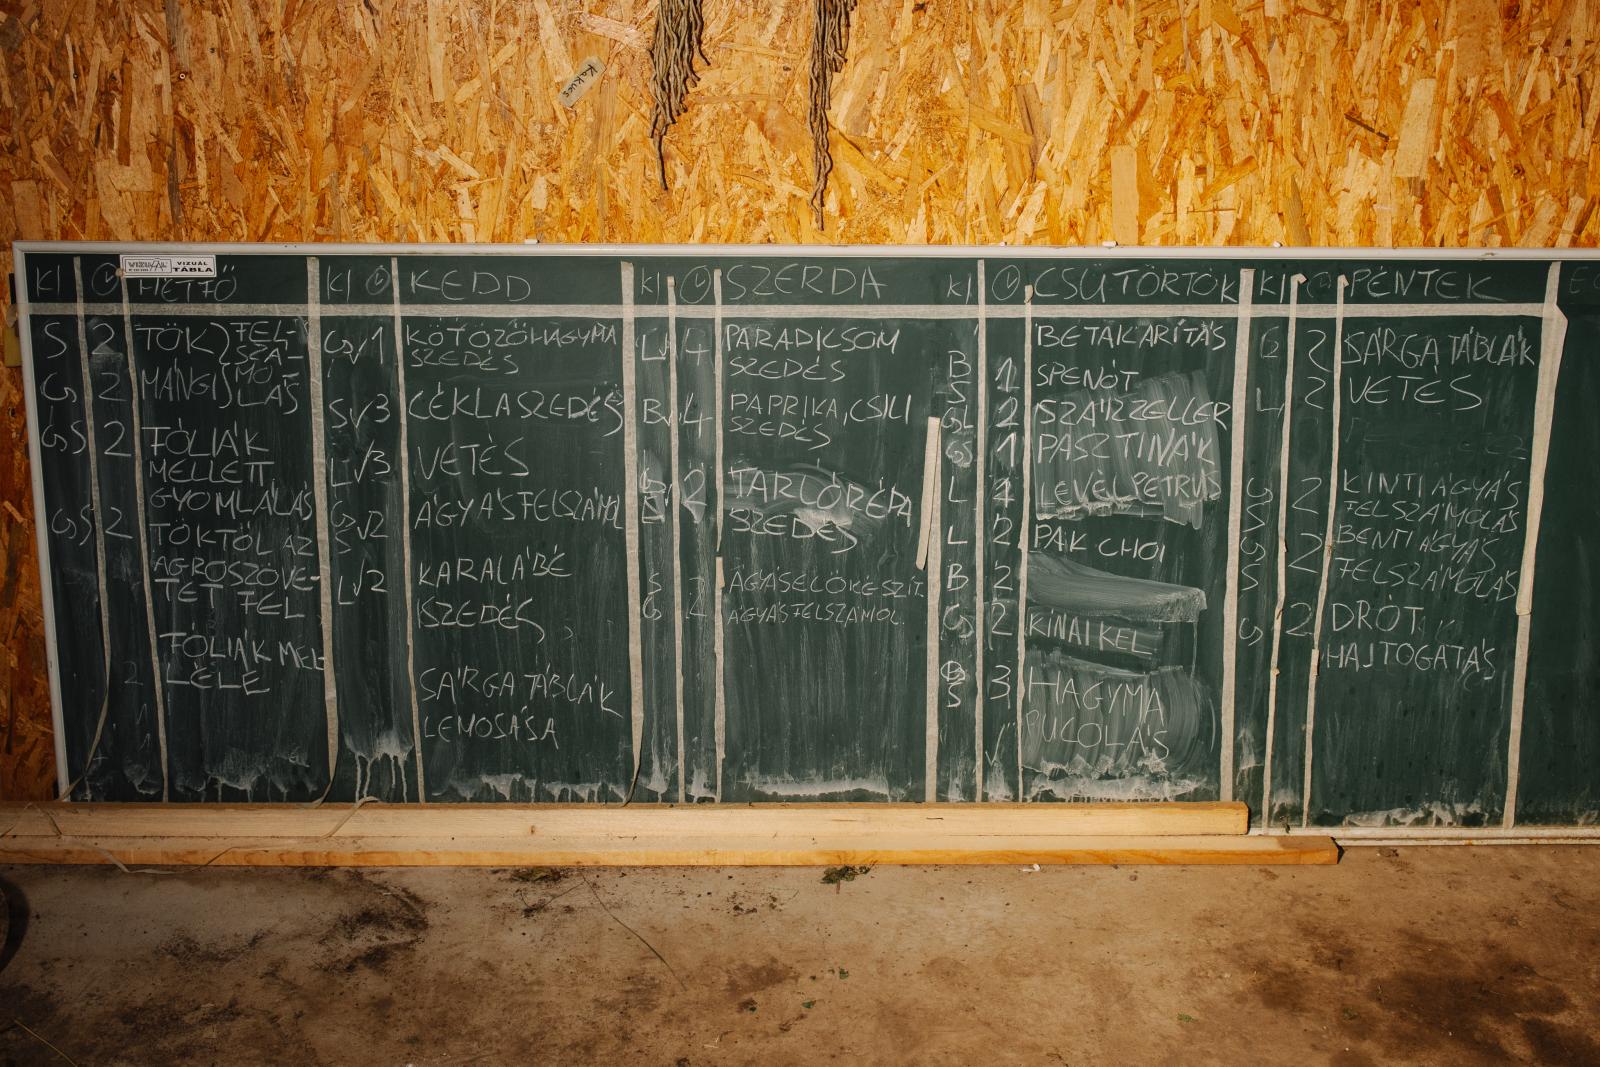 Kakucs
VIZUÁL TÁBLA
KI HÉTFŐ
S 2 TÖK } FEL-
SZÁ-
G 2 MÁNGI MO-
LÁS
GS 2 FÓLIÁK
MELLETT
GYOMLÁLÁS
GS 2 TÖKTŐL AZ
AGROSZÖVE-
TET FEL
FÓLIÁK MEL-
LÉLE
KI KEDD
G√1 KÖTÖZŐHAGYMA
SZEDÉS
S√3 CÉKLASZEDÉS
L√3 VETÉS
G√2 ÁGYÁSFELSZÁMOL
S
L√2 KARALÁBÉ
SZEDÉS
SÁRGA TÁBLÁK
LEMOSÁSA
KI SZERDA
L 4 PARADICSOM
SZEDÉS
B 4 PAPRIKA, CSILI
SZEDÉS
2 TARLÓRÉPA
SZEDÉS
S ÁGYÁSELŐKÉSZÍT.
G 2 ÁGYÁSFELSZÁMOL.
KI CSÜTÖRTÖK
BETAKARÍTÁS
B
S 1 SPENÓT
GL 2 SZÁRZELLER
G 1 PASZTINÁK
L 1 LEVÉL PETRUS
L 2 PAK CHOI
B 2
G 2 KÍNAI KEL
S 3 HAGYMA
PUCOLÁS
KI PÉNTEK
2 SÁRGA TÁBLÁK
L 2 VETÉS
G 2 KINTI ÁGYÁS
S FELSZÁMOLÁS
G 2 BENTI ÁGYÁS
S FELSZÁMOLÁS
G 2 DRÓT
HAJTOGATÁS